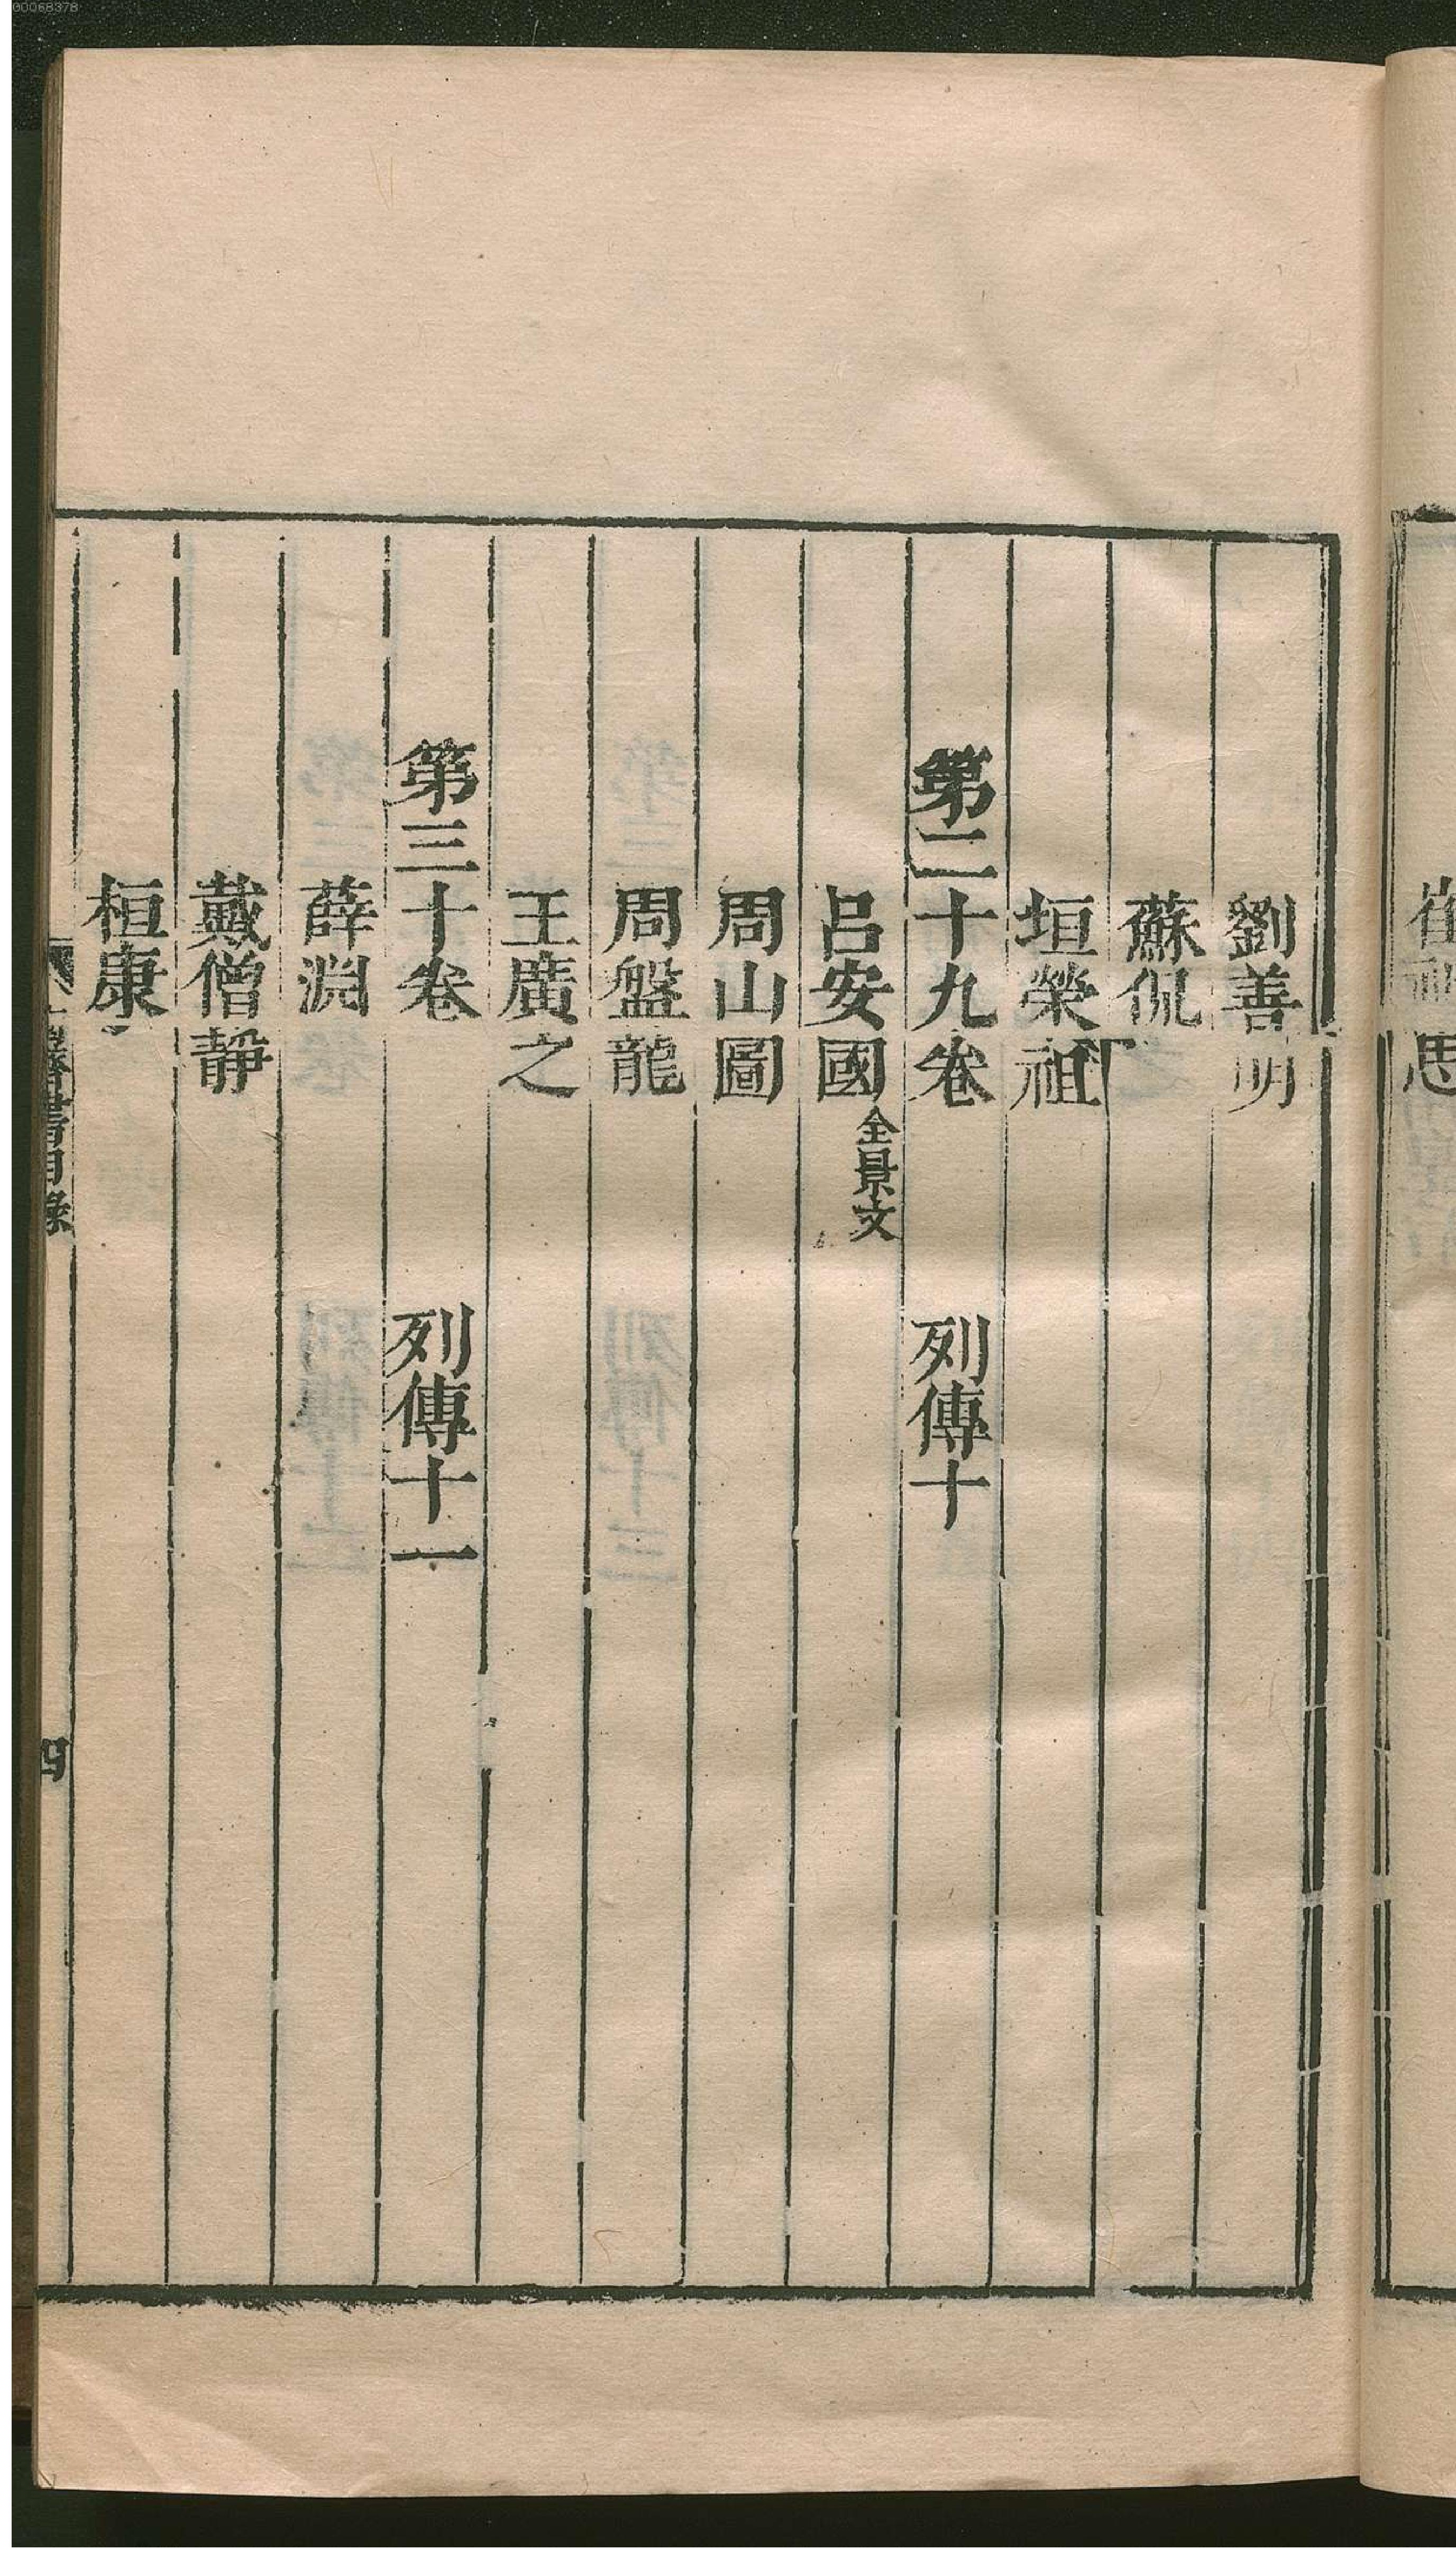 劉善明
蘇侃
垣榮祖
第二十九卷 列傳十
呂安國 全景文
周山圖
周盤龍
王廣之
第三十卷 列傳十一
薛淵
戴僧靜
桓康
齊書目錄 四
00068378